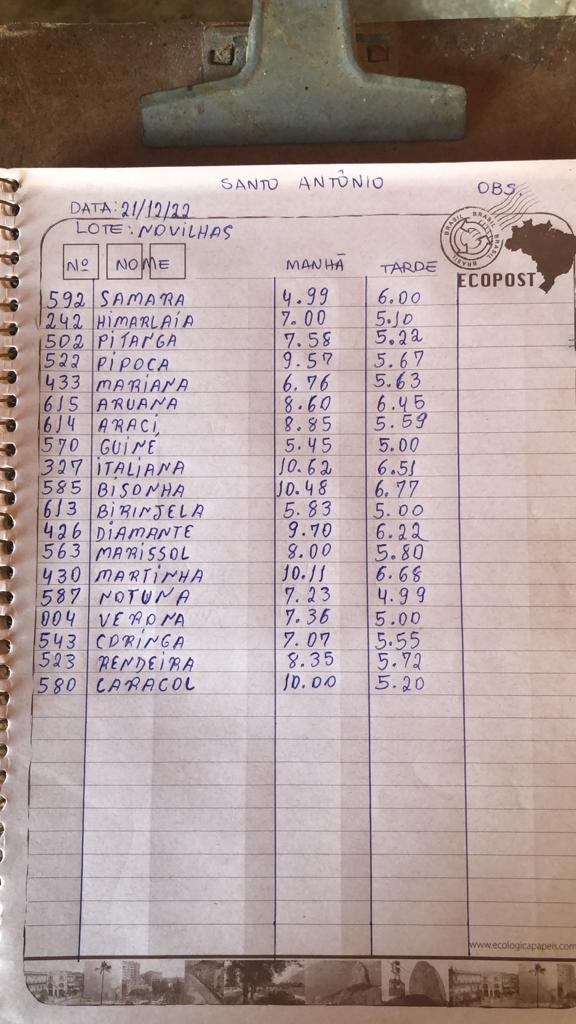 SANTO ANTÔNIO
OBS.
DATA: 21/12/22
LOTE: NOVILHAS
BRASIL BRASIL BRASIL BRASIL
ECOPOST
Nº NOME MANHÃ TARDE
592 SAMARA 4.99 6.00
242 HIMARLAIA 7.00 5.10
502 PITANGA 7.58 5.22
522 PIPOCA 9.57 5.67
433 MARIANA 6.76 5.63
615 ARUANA 8.60 6.45
614 ARACI 8.85 5.59
570 GUINE 5.45 5.00
327 ITALIANA 10.62 6.51
585 BISONHA 10.48 6.77
613 BIRINJELA 5.83 5.00
426 DIAMANTE 9.70 6.22
563 MARISSOL 8.00 5.80
430 MARTINHA 10.11 6.68
587 NOTUNA 7.23 4.99
004 VERONA 7.36 5.00
543 CORINGA 7.07 5.55
523 RENDEIRA 8.35 5.72
580 CARACOL 10.00 5.20
www.ecologicapapeis.com